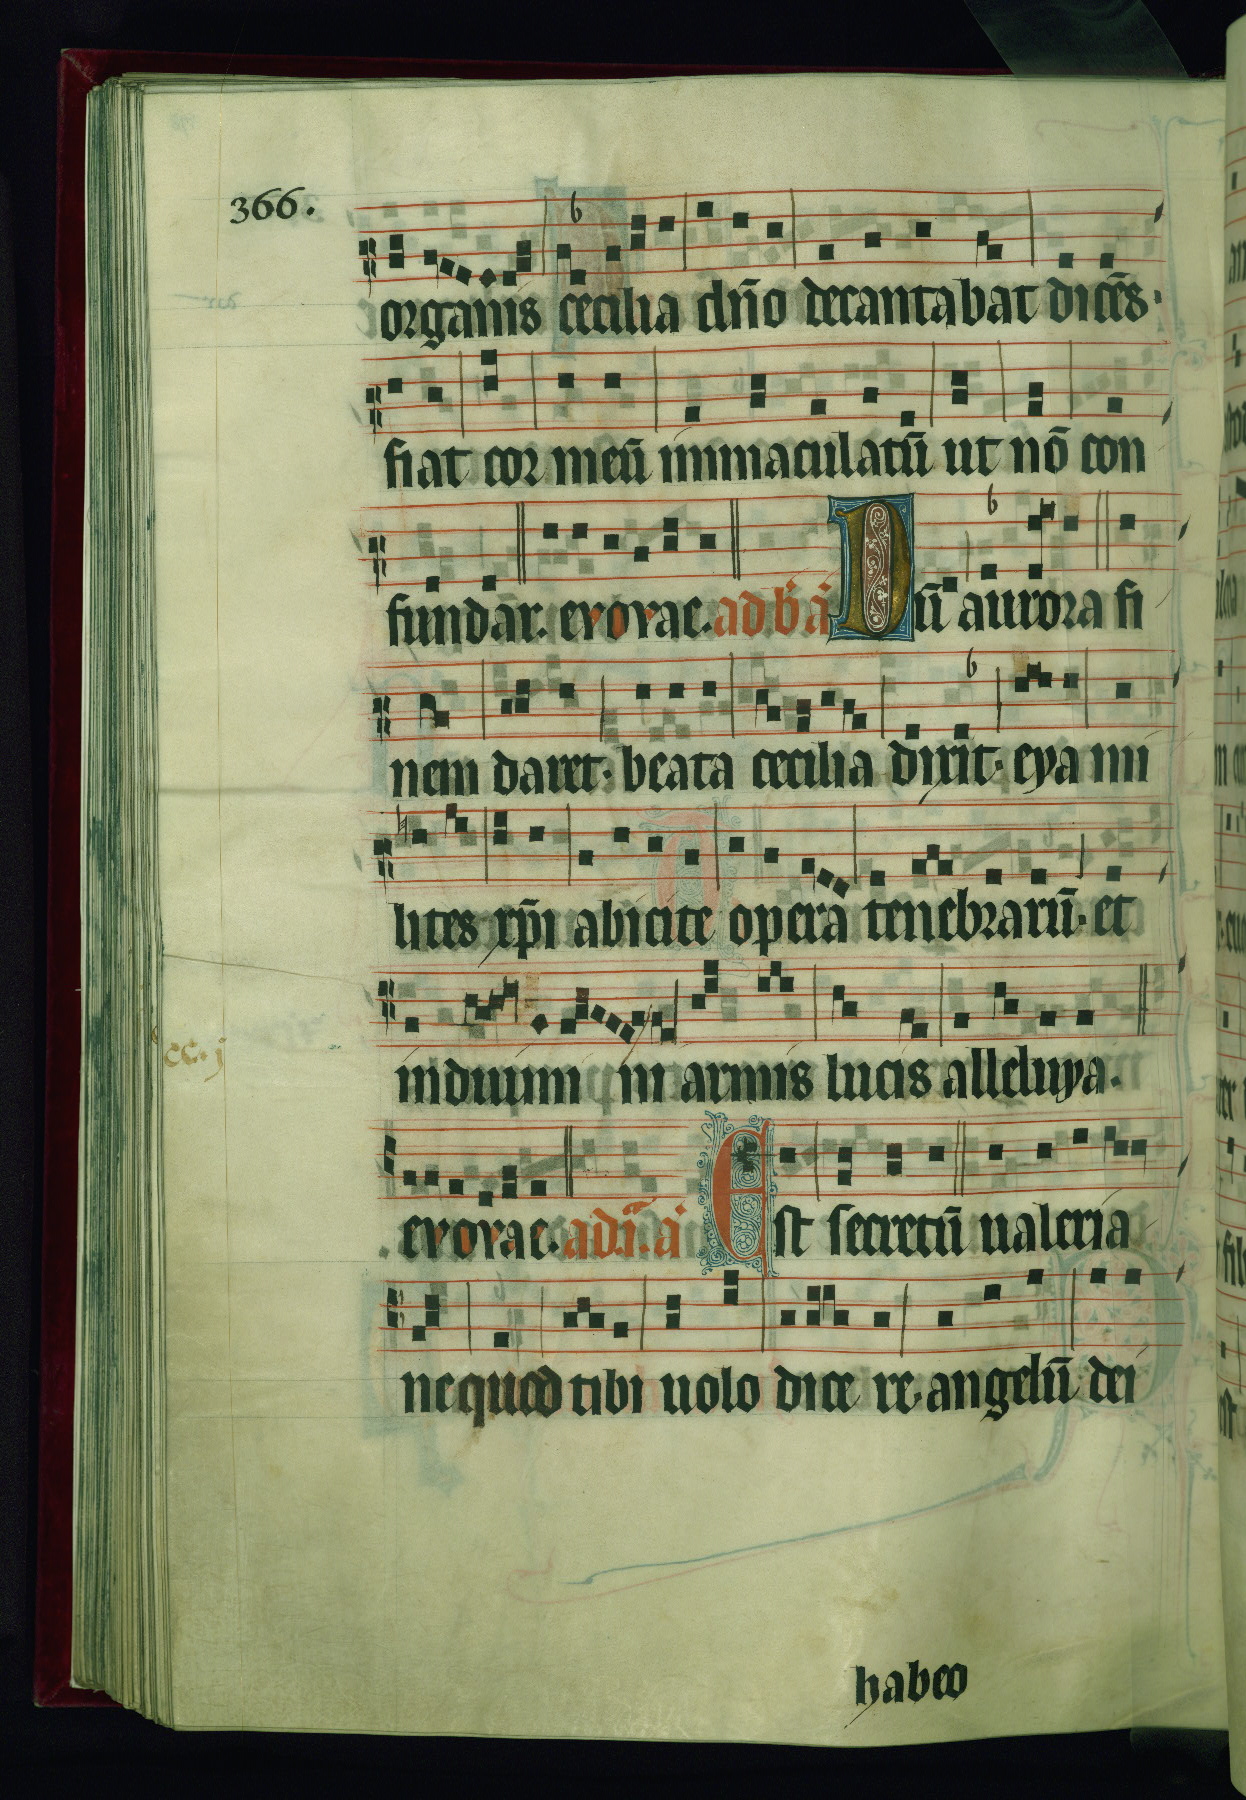 366.
organis cecilia dn̄o decantabat dicēs·
fiat cor meū immaculatū ut nō con
fundar. evovae. ad b̄ ā Dū aurora fi
nem daret· beata cecilia dixit· eya mi
lites xp̄i abicite opera tenebrarū· et
induimini armis lucis alleluya.
evovae. ad .i. ā Est secretū ualeria
ne quod tibi uolo dice re· angelū dei
cc. j
habeo